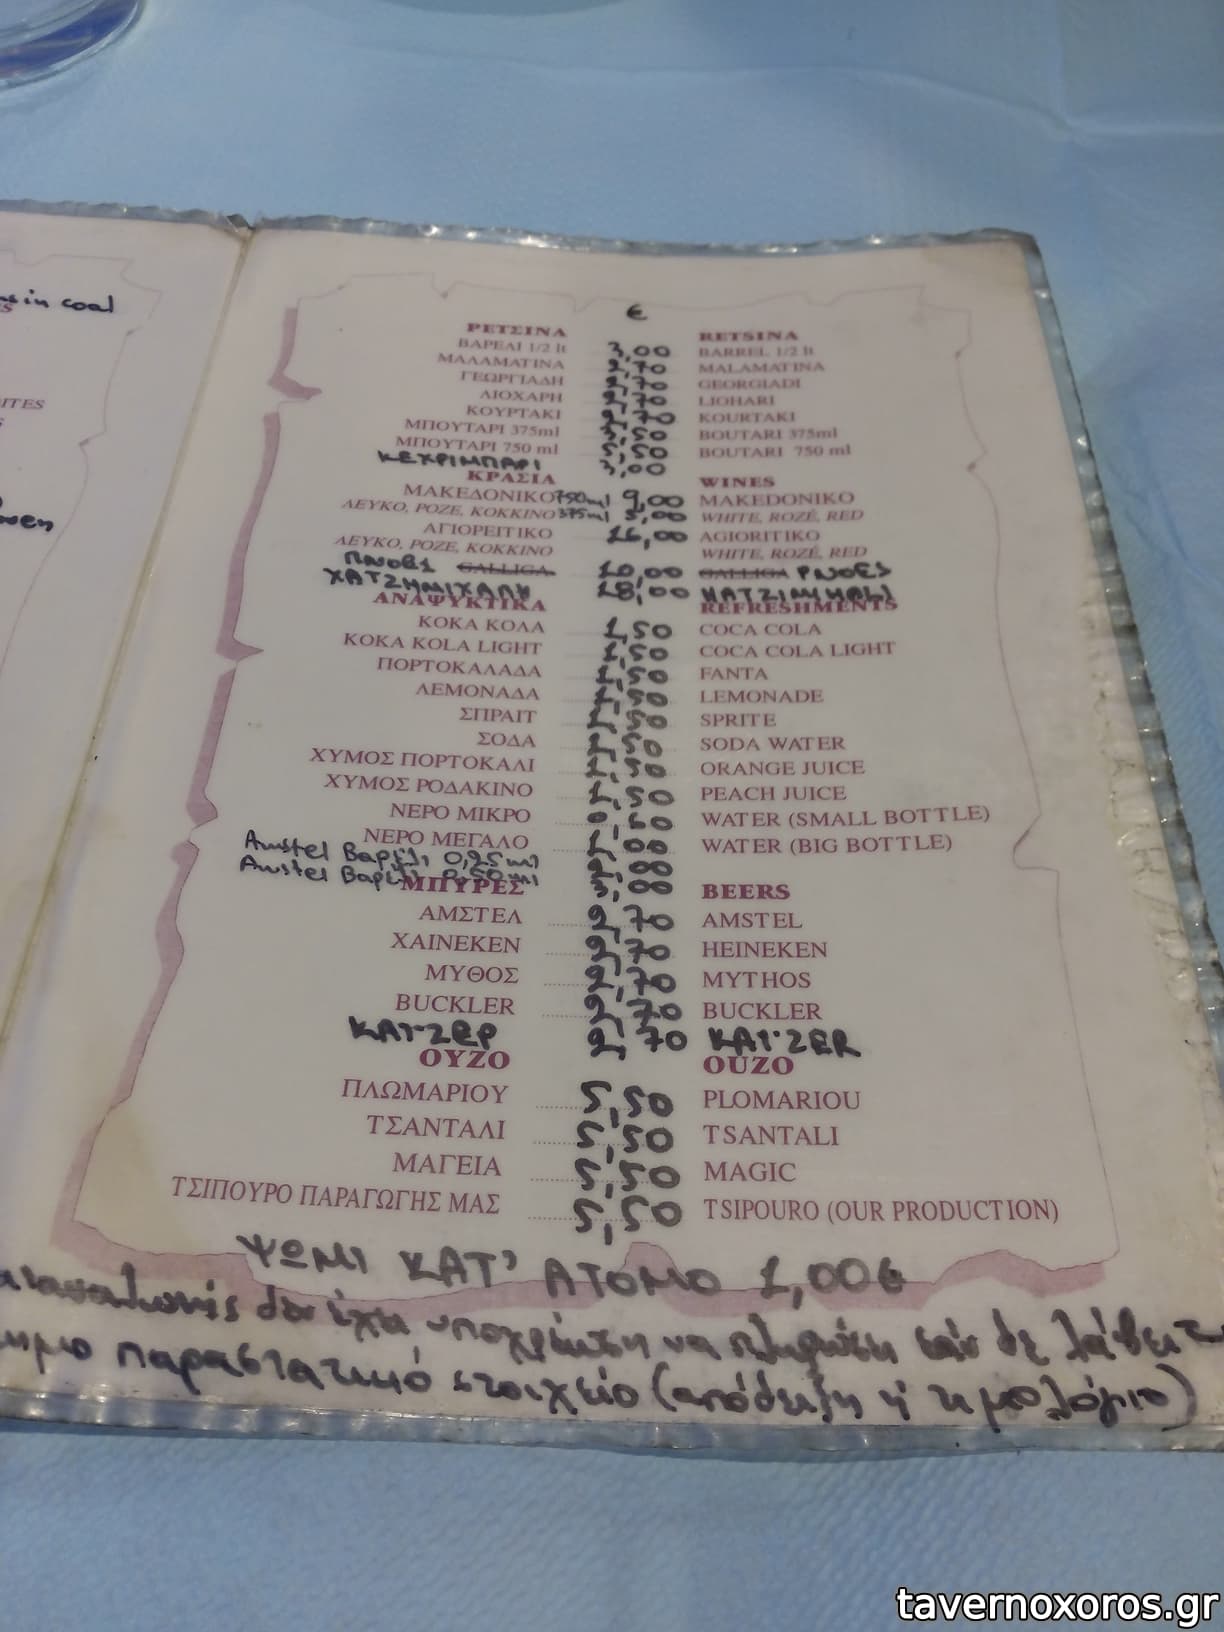 s in coal
S
ITES
€
ΡΕΤΣΙΝΑ RETSINA
ΒΑΡΕΛΙ 1/2 lt 3,00 BARREL 1/2 lt
ΜΑΛΑΜΑΤΙΝΑ 2,70 MALAMATINA
ΓΕΩΡΓΙΑΔΗ 2,70 GEORGIADI
ΛΙΟΧΑΡΗ 2,70 LIOHARI
ΚΟΥΡΤΑΚΙ 2,70 KOURTAKI
ΜΠΟΥΤΑΡΙ 375ml 3,50 BOUTARI 375ml
ΜΠΟΥΤΑΡΙ 750 ml 5,50 BOUTARI 750 ml
ΚΕΧΡΙΜΠΑΡΙ 3,00
ΚΡΑΣΙΑ WINES
ΜΑΚΕΔΟΝΙΚΟ 750ml 9,00 MAKEDONIKO
ΛΕΥΚΟ, ΡΟΖΕ, ΚΟΚΚΙΝΟ 375ml 5,00 WHITE, ROZÉ, RED
ΑΓΙΟΡΕΙΤΙΚΟ 16,00 AGIORITIKO
ΛΕΥΚΟ, ΡΟΖΕ, ΚΟΚΚΙΝΟ WHITE, ROZÉ, RED
GALLIGA 10,00 GALLIGA PNOES
ΧΑΤΖΗΜΙΧΑΛΗ 18,00
ΑΝΑΨΥΚΤΙΚΑ REFRESHMENTS
ΚΟΚΑ ΚΟΛΑ 1,50 COCA COLA
KOKA KOLA LIGHT 1,50 COCA COLA LIGHT
ΠΟΡΤΟΚΑΛΑΔΑ 1,50 FANTA
ΛΕΜΟΝΑΔΑ 1,50 LEMONADE
ΣΠΡΑΙΤ 1,50 SPRITE
ΣΟΔΑ 1,50 SODA WATER
ΧΥΜΟΣ ΠΟΡΤΟΚΑΛΙ 1,50 ORANGE JUICE
ΧΥΜΟΣ ΡΟΔΑΚΙΝΟ 1,50 PEACH JUICE
ΝΕΡΟ ΜΙΚΡΟ 0,50 WATER (SMALL BOTTLE)
ΝΕΡΟ ΜΕΓΑΛΟ 1,00 WATER (BIG BOTTLE)
Amstel Βαρέλι 0,25ml 2,00
Amstel Βαρέλι 0,50ml 3,00
ΜΠΥΡΕΣ BEERS
ΑΜΣΤΕΛ 2,70 AMSTEL
ΧΑΙΝΕΚΕΝ 2,70 HEINEKEN
ΜΥΘΟΣ 2,70 MYTHOS
BUCKLER 2,70 BUCKLER
ΚΑΙΖΕΡ 2,70 ΚΑΙΖΕR
ΟΥΖΟ OUZO
ΠΛΩΜΑΡΙΟΥ 5,50 PLOMARIOU
ΤΣΑΝΤΑΛΙ 5,50 TSANTALI
ΜΑΓΕΙΑ 5,50 MAGIC
ΤΣΙΠΟΥΡΟ ΠΑΡΑΓΩΓΗΣ ΜΑΣ 5,50 TSIPOURO (OUR PRODUCTION)
ΨΩΜΙ ΚΑΤ' ΑΤΟΜΟ 1,00€
αταναλωτής δεν έχει υποχρέωση να πληρώσει εάν δε λάβει τ
παραστατικό στοιχείο (απόδειξη ή τιμολόγιο)
tavernoxoros.gr